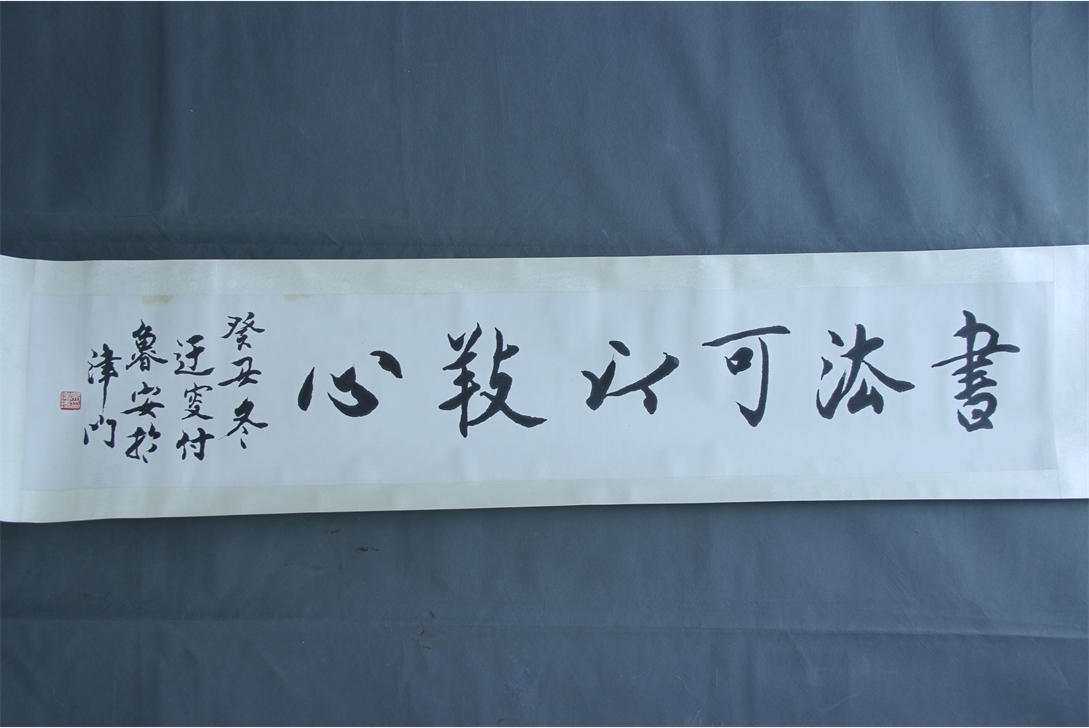 書法可以養心
癸丑冬
迂叟付
魯安於
津門